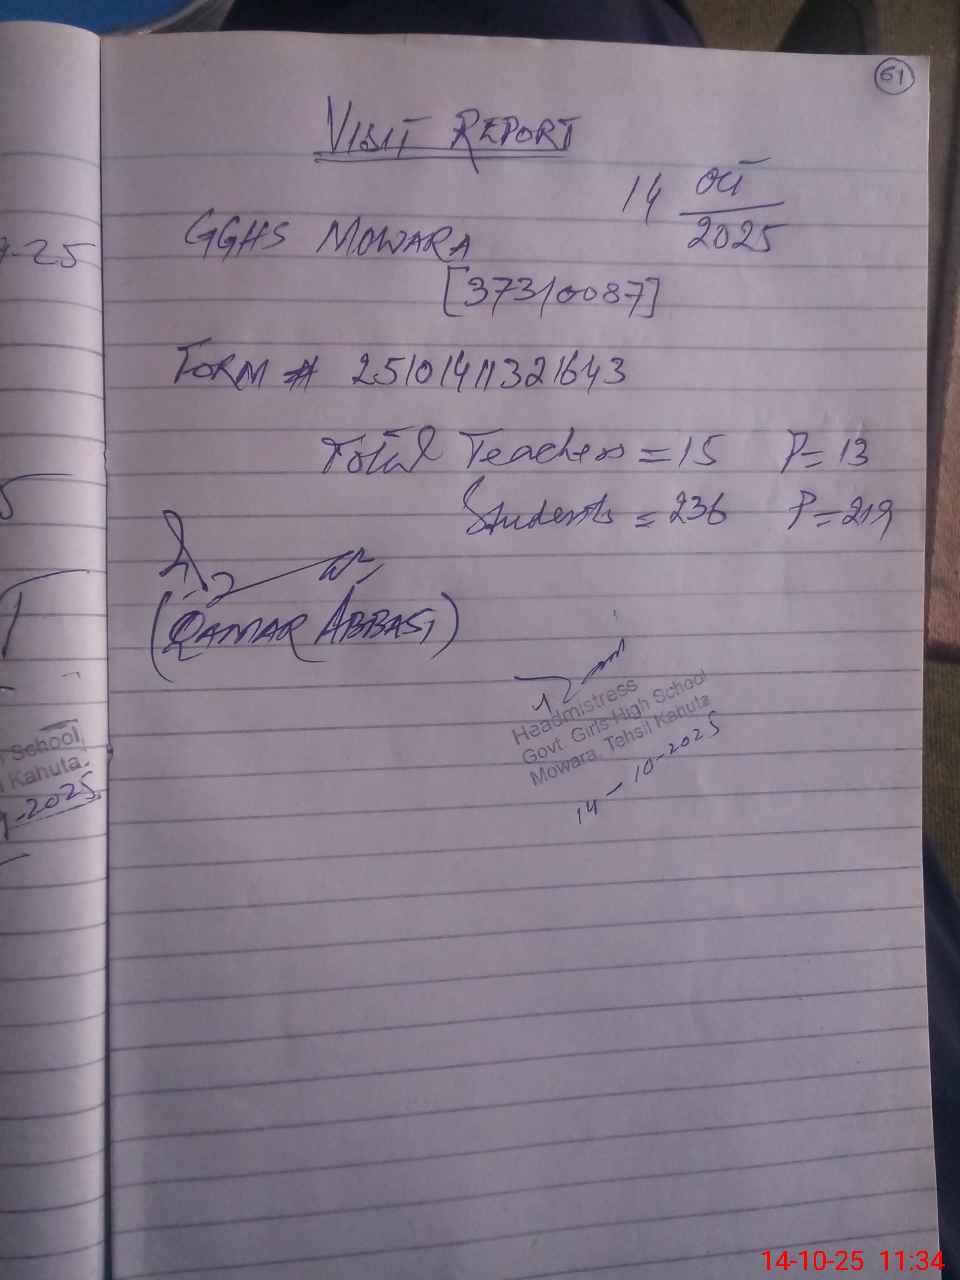 61
VISIT REPORT
14 Oct
2025
GGHS MOWARA
[37310087]
FORM # 2510141321643
Total Teachers = 15 P= 13
Students = 236 P= 219
(QAMAR ABBASI)
Headmistress
Govt. Girls High School
Mowara, Tehsil Kahuta
14-10-2025
-25
School,
Kahuta.
-2025
14-10-25 11:34